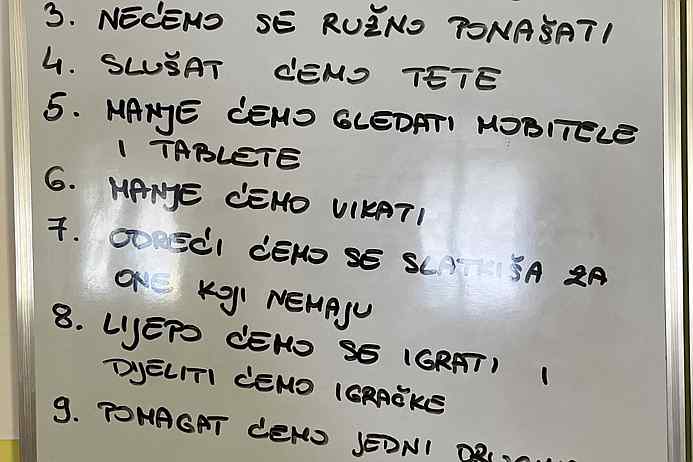 3. NEĆEMO SE RUŽNO PONAŠATI
4. SLUŠAT ĆEMO TETE
5. MANJE ĆEMO GLEDATI MOBITELE
I TABLETE
6. MANJE ĆEMO VIKATI
7. ODREĆI ĆEMO SE SLATKIŠA ZA
ONE KOJI NEMAJU
8. LIJEPO ĆEMO SE IGRATI I
DIJELITI ĆEMO IGRAČKE
9. POMAGAT ĆEMO JEDNI